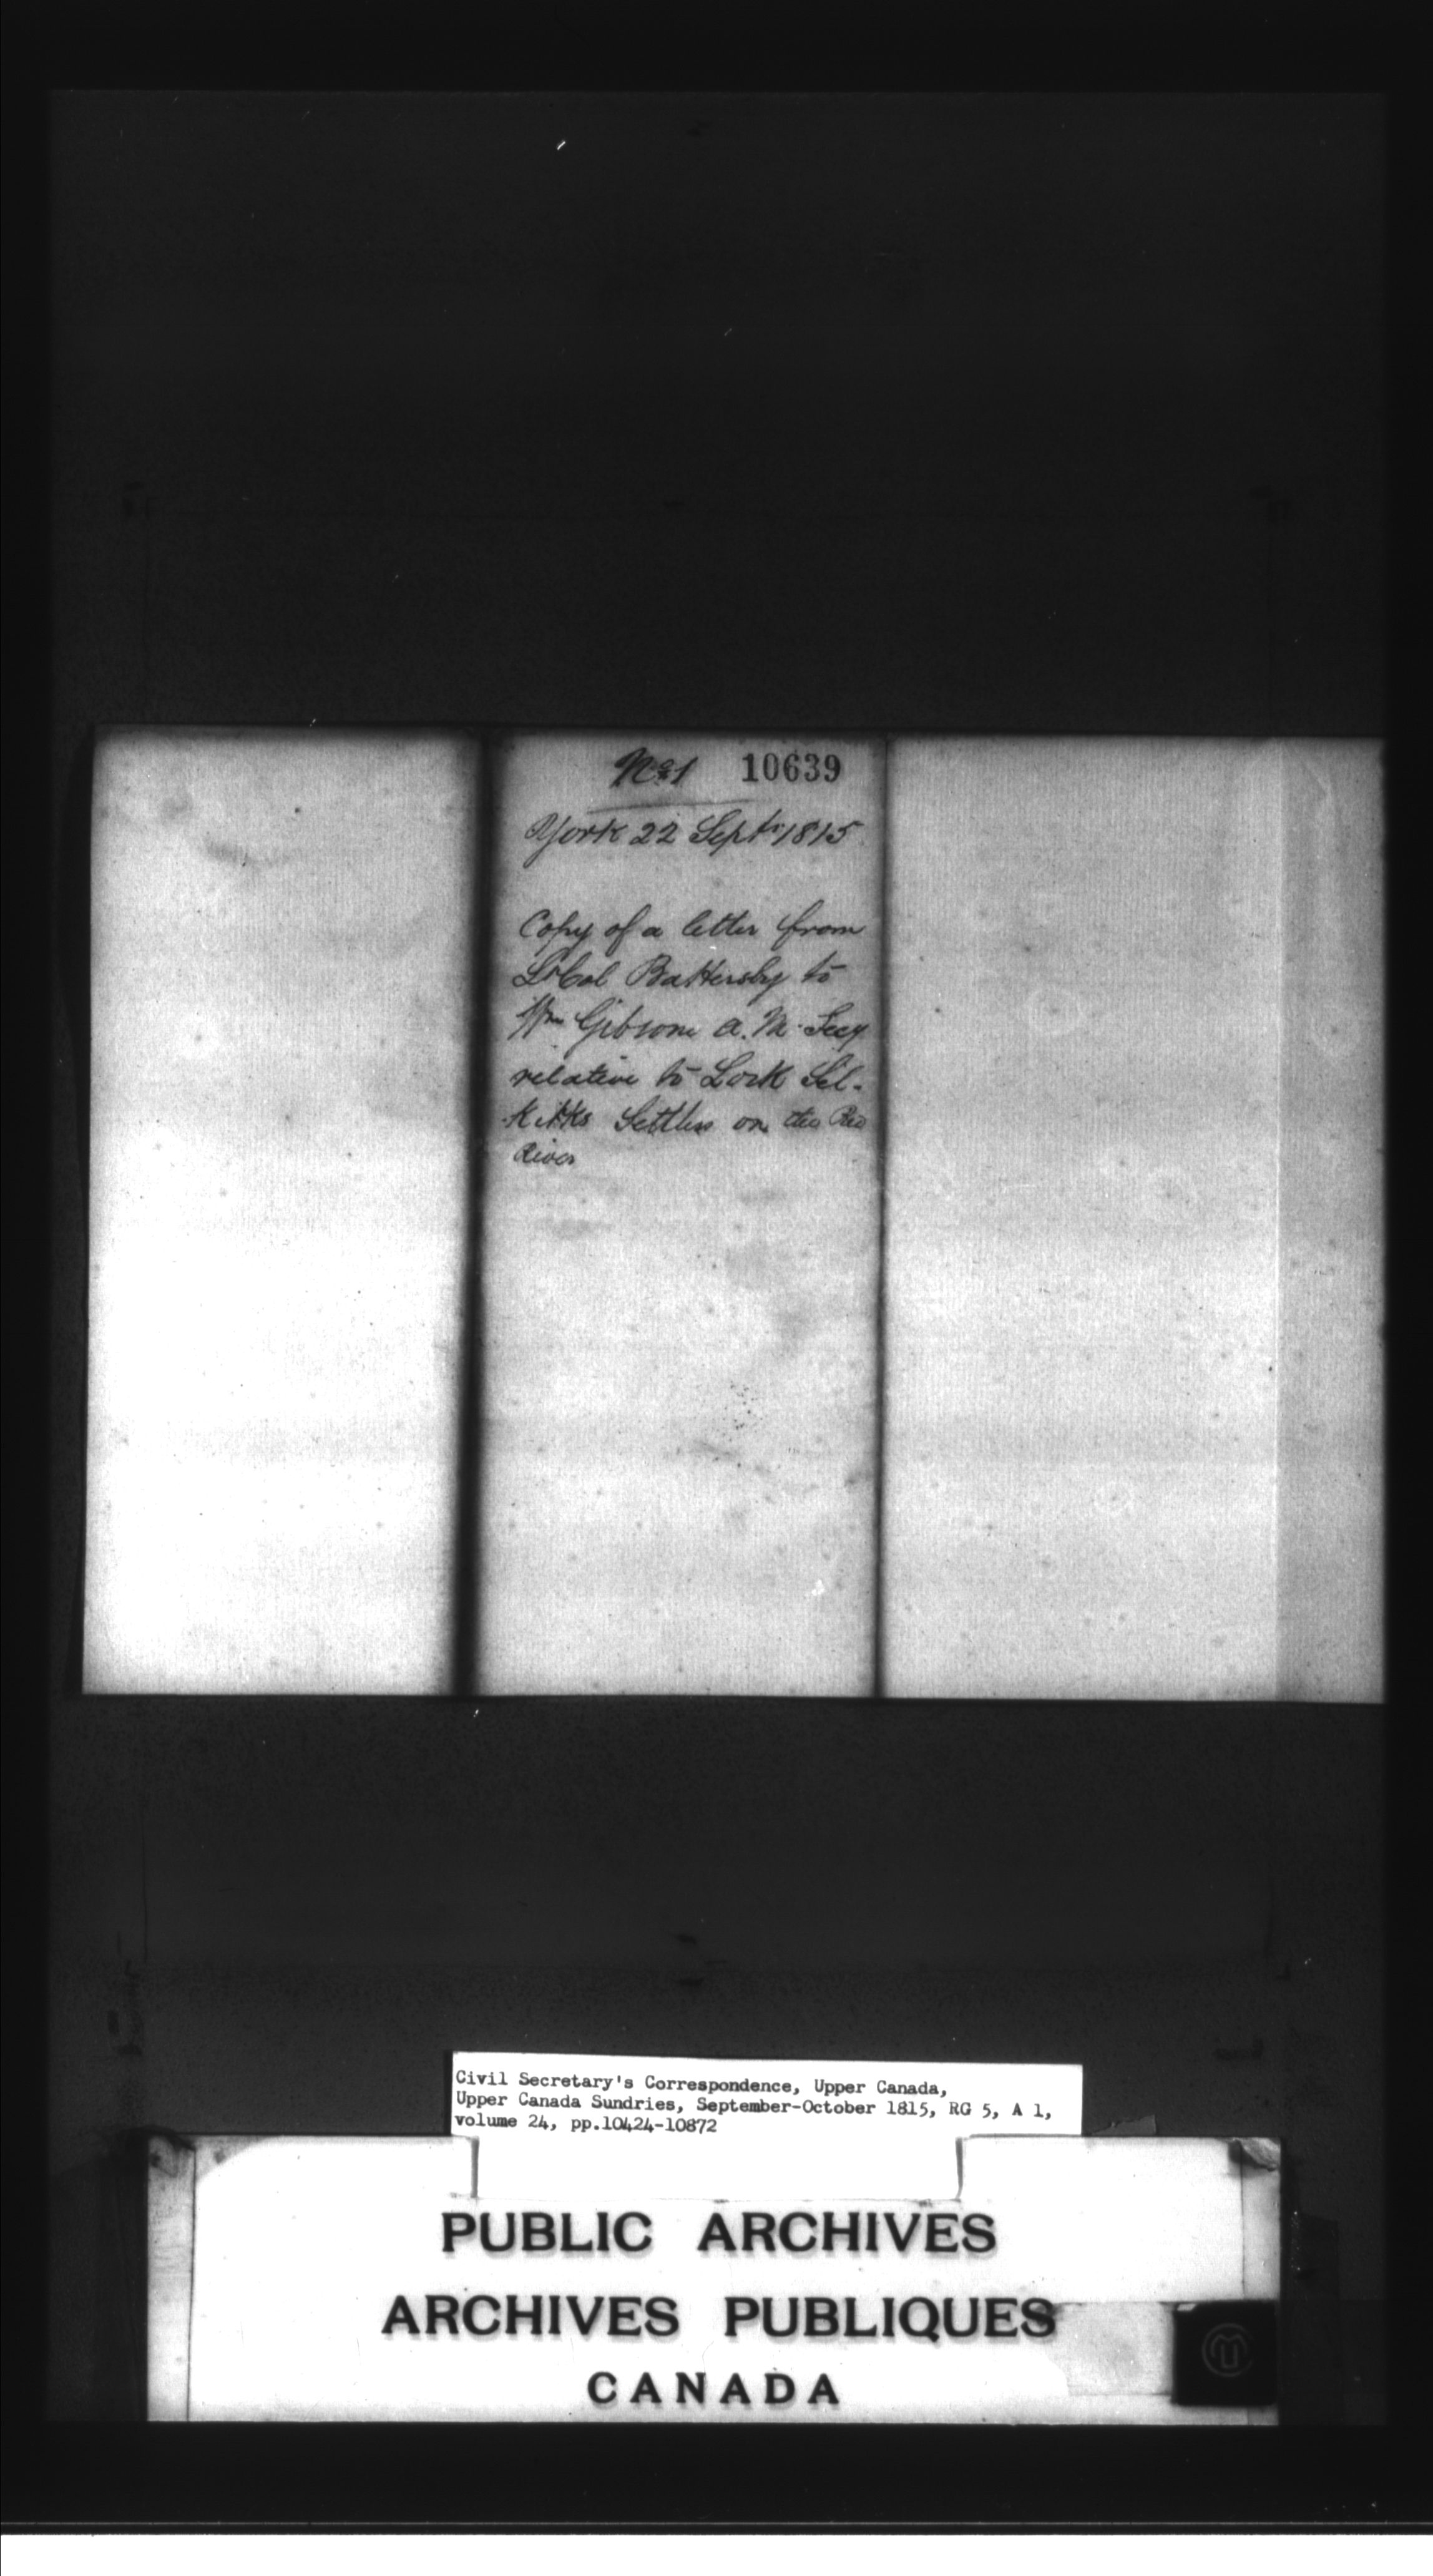 No 1 10639
York 22 Septr 1815
Copy of a letter from
Lt Col Battersby to
Wm Gibsone A. M. Secy
relative to Lord Sel-
kirks Settlers on the Red
River
Civil Secretary's Correspondence, Upper Canada,
Upper Canada Sundries, September-October 1815, RG 5, A 1,
volume 24, pp.10424-10872
PUBLIC ARCHIVES
ARCHIVES PUBLIQUES
CANADA